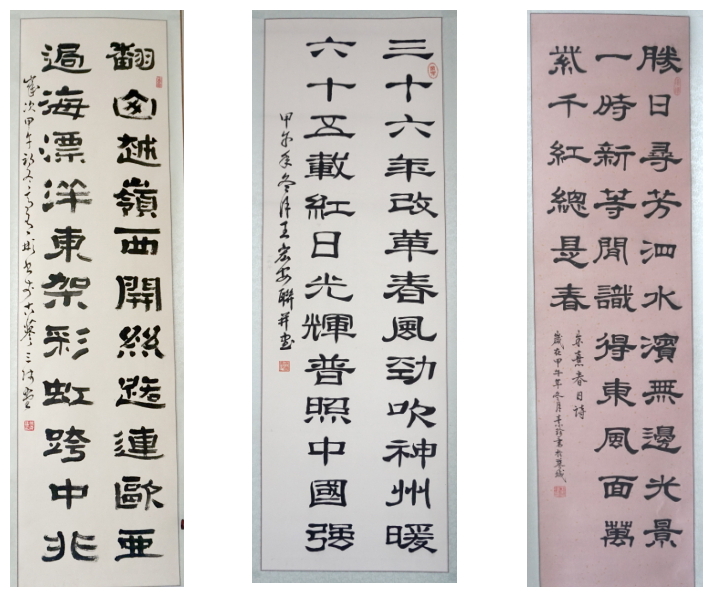 翻山越嶺西開絲路連歐亞
過海漂洋東架彩虹跨中非
歲次甲午初冬
三十六年改革春風勁吹神州暖
六十五載紅日光輝普照中國强
甲午年冬月王宏安聯并書
勝日尋芳泗水濱無邊光景
一時新等閒識得東風面萬
紫千紅總是春
朱熹春日詩
歲在甲午年冬月